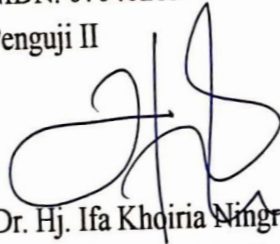 Penguji II
Dr. Hj. Ifa Khoiria Ningr